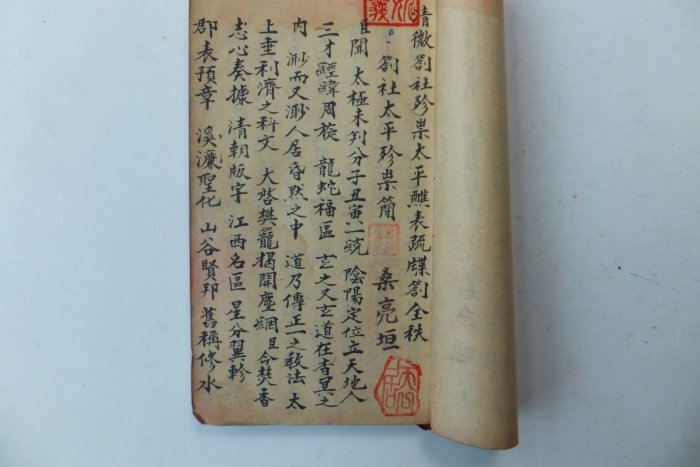 清微劄社殄祟太平醮表疏牒劄全秩
劄社太平殄祟簡 桑亮垣
臣聞 太極未判分子丑寅一統 陰陽定位立天地人
三才經緯周旋 龍蛇福區 玄之又玄道在杳冥之
内 渺而又渺人居昏黙之中 道乃傳正一之教法 太
上垂利濟之科文 大啓樊籠揭開塵網 臣合焚香
志心奏據 清朝版宇 江西名區 星分翼軫
郡表預章 溪濂聖化 山谷賢邦 舊稱修水